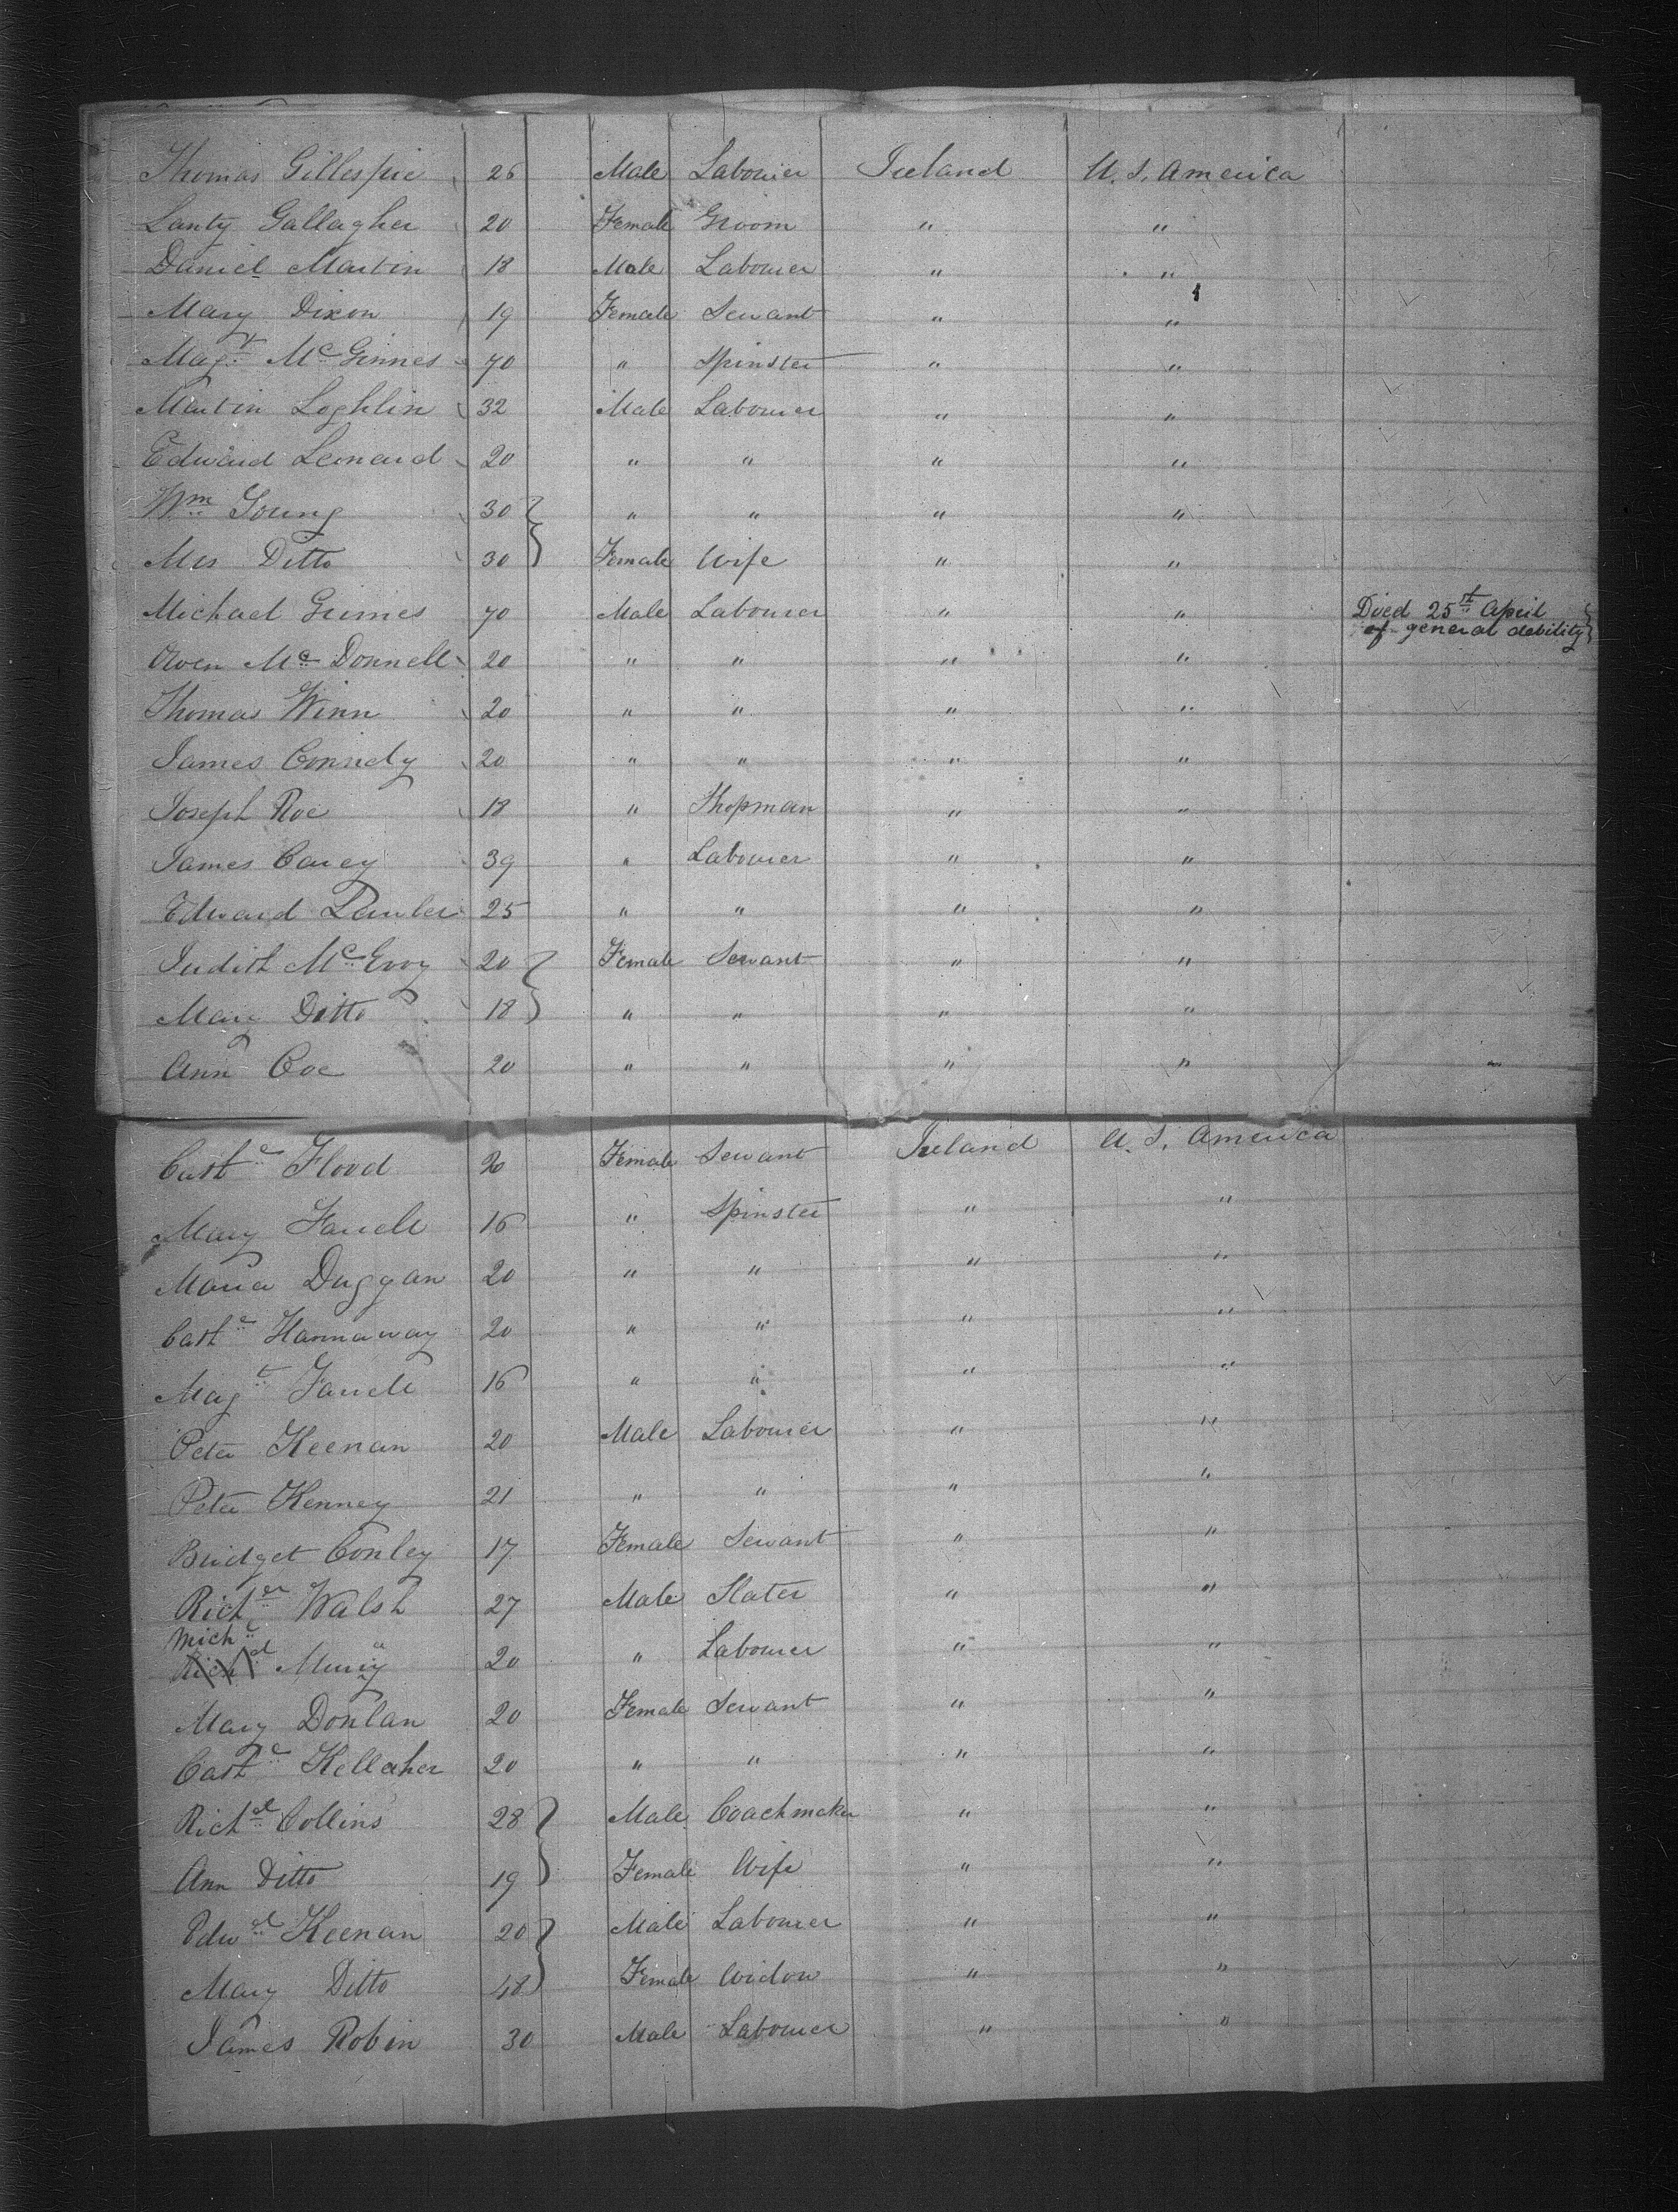 Thomas Gillespie 26 Male Labourer Ireland U.S. America
Lanty Gallagher 20 Female Groom " "
Daniel Martin 18 Male Labourer " "
Mary Dixon 19 Female Servant " "
Magt McGinnes 70 " Spinster " "
Martin Loghlin 32 Male Labourer " "
Edward Leonard 20 " " " "
Wm Young 30 " " " "
Mrs Ditto 30 Female Wife " "
Michael Grimes 70 Male Labourer " " Died 25th April
of general debility
Owen McDonnell 20 " " " "
Thomas Winn 20 " " " "
James Connely 20 " " " "
Joseph Roe 18 " Shopman " "
James Carey 39 " Labourer " "
Edward 25 " " " "
Judith McEvoy 20 Female Servant " "
Mary Ditto 18 " " " "
Ann Coe 20 " " " " "
Cathe Flood 20 Female Servant Ireland U.S. America
Mary Farrell 16 " Spinster " "
Maria Duggan 20 " " " "
Cathe Hannaway 20 " " " "
Magt Farrell 16 " " " "
Peter Keenan 20 Male Labourer " "
Peter Kenney 21 " " " "
Bridget Conley 17 Female Servant " "
Richd Walsh 27 Male Slater " "
Michl
Richd Murry 20 " Labourer " "
Mary Donlan 20 Female Servant " "
Cathe Kellaher 20 " " " "
Richd Collins 28 Male Coachmaker " "
Ann Ditto 19 Female Wife " "
Edwd Keenan 20 Male Labourer " "
Mary Ditto 48 Female Widow " "
James Robin 30 Male Labourer " "